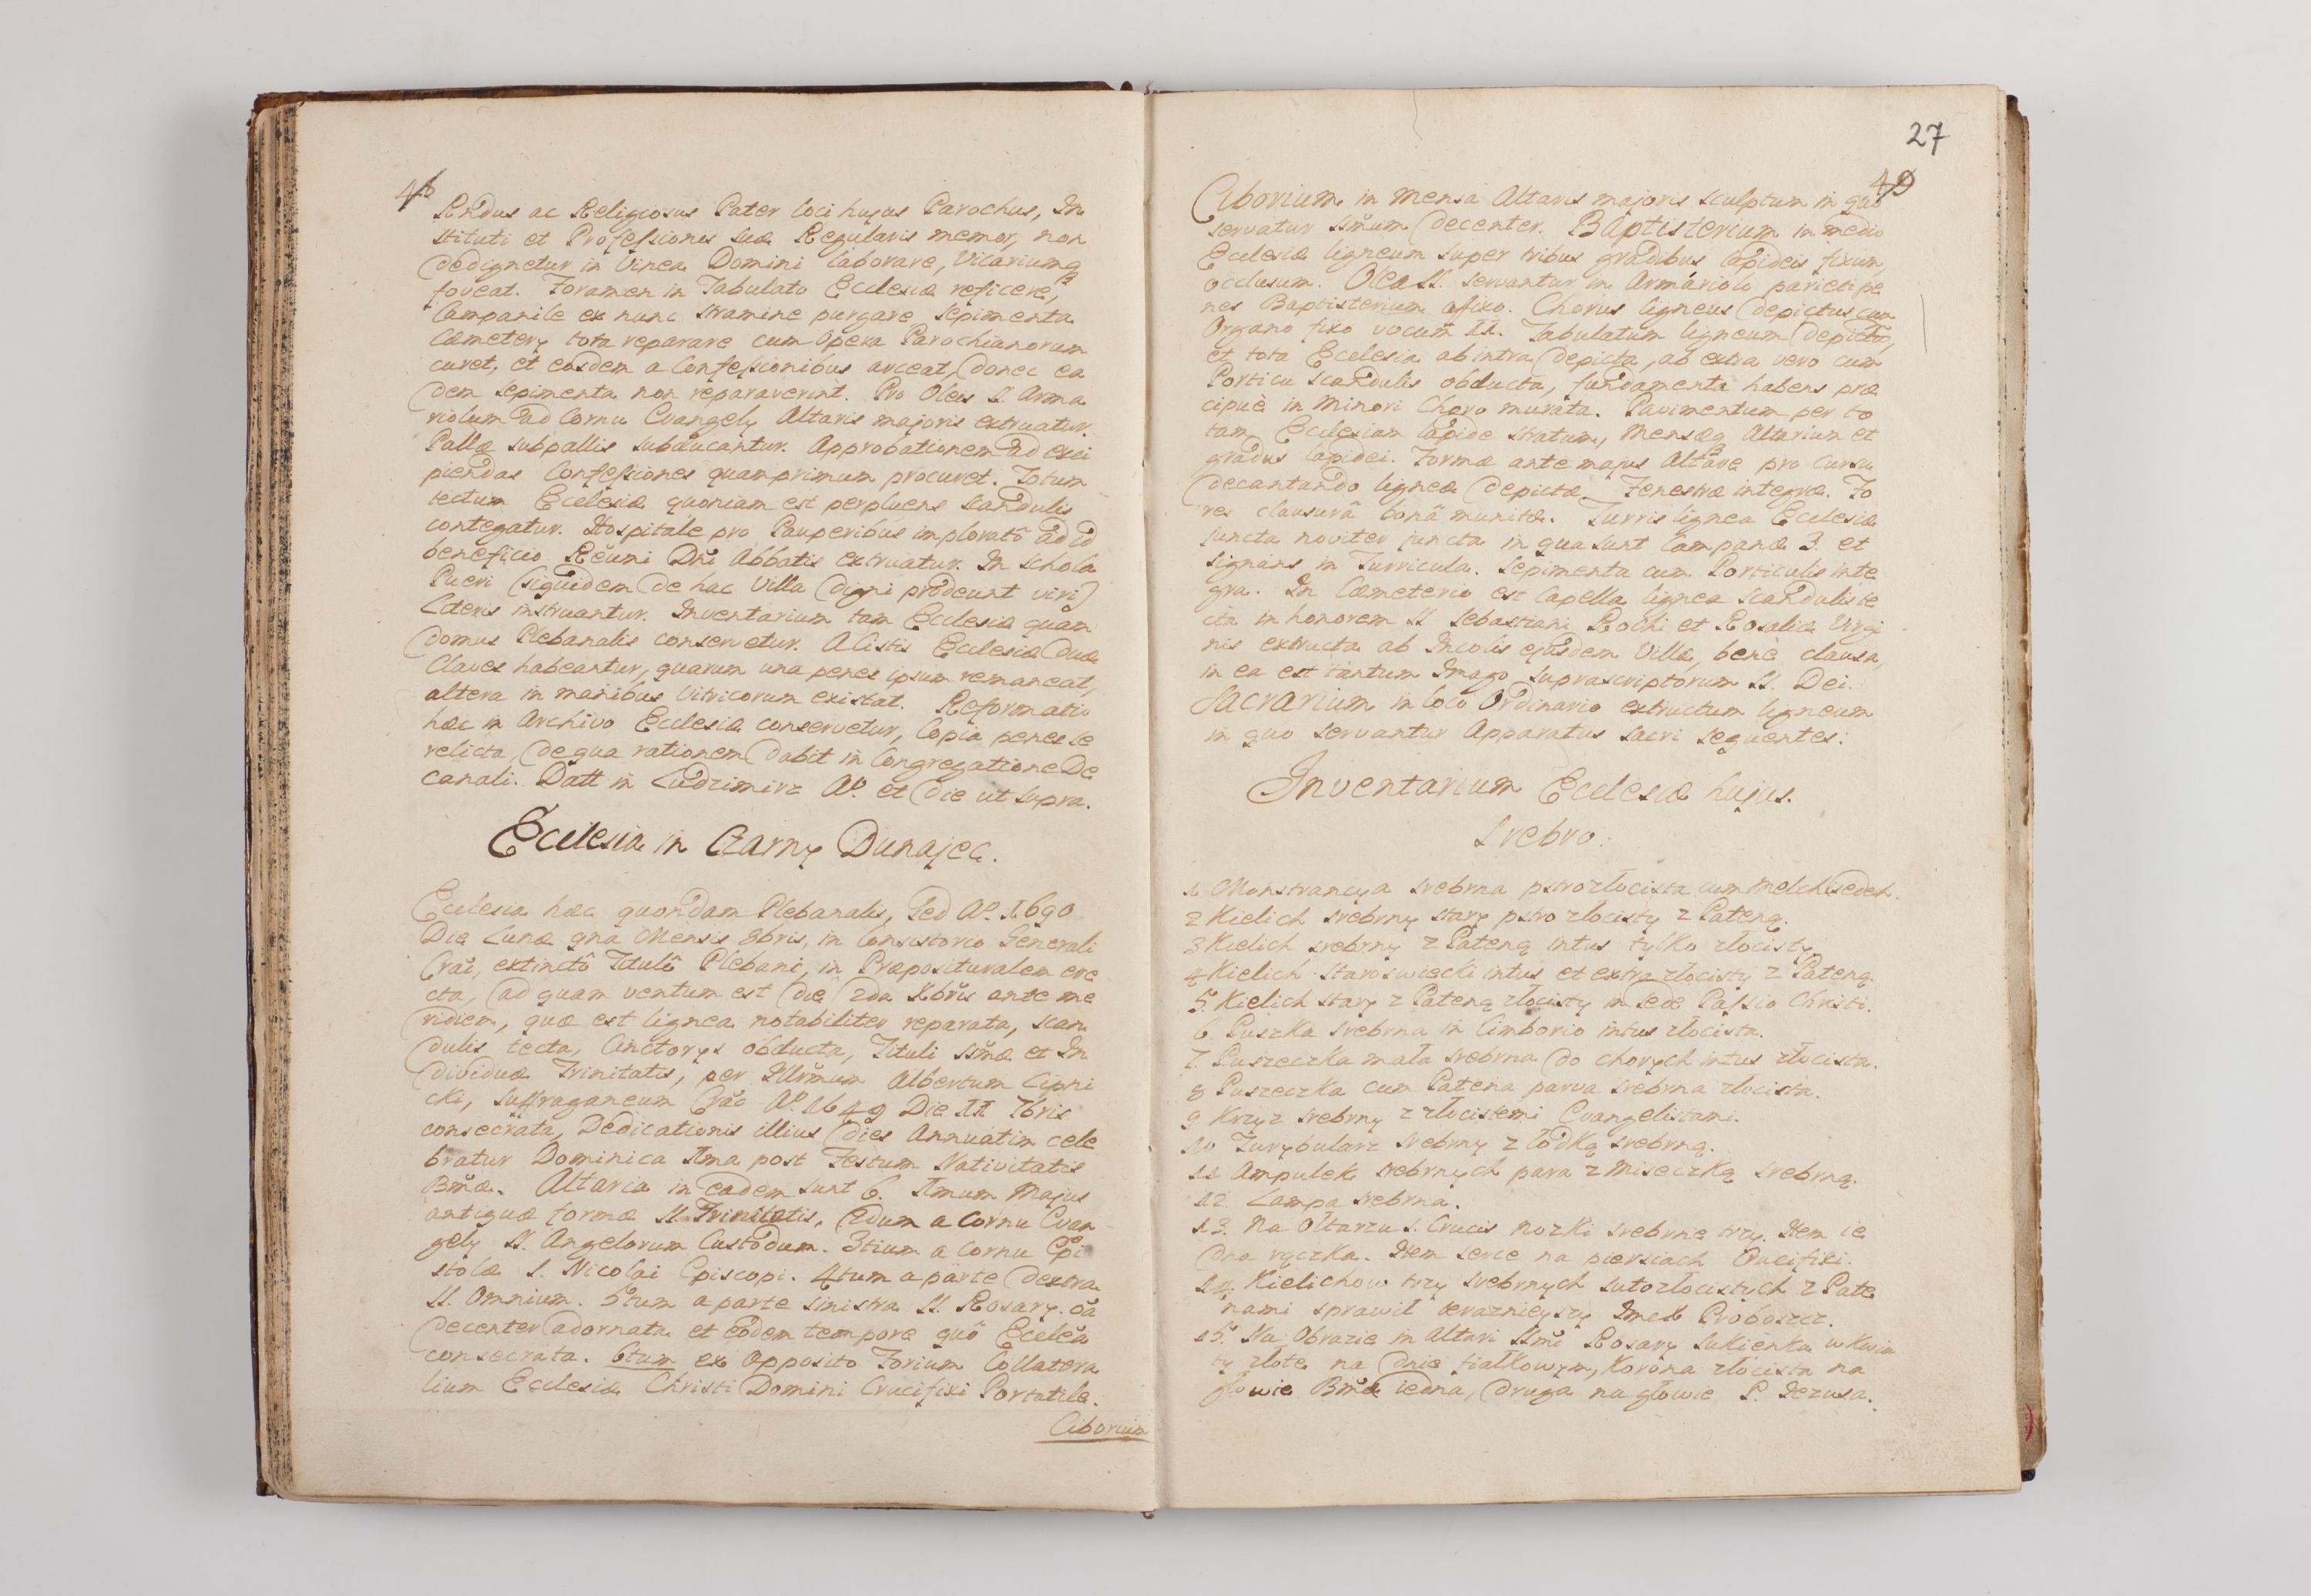 Rndus ac Religiosus Pater loci hujus Parochus, In
stituti et Professionis suæ Regularis memor, non
dedignetur in Vinea Domini laborare, Vicariumq
foveat. Foramen in Tabulato Ecclesiæ reficere,
Campanile ex nunc stramine purgare, sepimenta
Cæmeterÿ tota reparare cum Opera Parochianorum
curet, et eosdem a Confessionibus arceat, donec ea
dem sepimenta non reparaverint. Pro Oleis S. Arma
riolum ad Cornu Evangelÿ Altaris majoris extruatur.
Pallæ subpallis subducantur. Approbationem ad exci
piendas Confessiones quamprimum procuret. Totum
tectum Ecclesiæ quoniam est perpluens scandulis
contegatur. Hospitale pro Pauperibus imploratô ad id
beneficio Rěumi Dňi Abbatis extruatur. In Schola
Pueri (siquidem de hac Villa digni prodeunt viri)
Lîteris instruantur. Inventarium tam Ecclesiæ quam
domus Plebanalis conservetur. A Cistis Ecclesiæ duæ
Claves habeantur, quarum una penes ipsum remaneat,
altera in manibus Vitricorum existat. Reformatio
hæc in Archivo Ecclesiæ conservetur, Copia penes se
relicta, de qua rationem dabit in Congregatione De
canali. Datt in Ludzimirz Aº. et die ut supra.
Ecclesia in Czarny Dunajec.
Ecclesia hæc quondam Plebanalis, sed Aº. 1690
Die Lunæ 9na Mensis 8bris, in Consistorio Generali
Crač, extinctô Titulô Plebani, in Præposituralem ere
cta, ad quam ventum est die 2da Xbris ante me
ridiem, quæ est lignea notabiliter reparata, scan
dulis tecta, Cinctorÿs obducta, Tituli ssmæ et In
dividuæ Trinitatis, per Illrmum Albertum Lipni
cki, Suffraganeum Crač Aº. 1649 Die 11 7bris
consecrata, Dedicationis illius dies Annuatim cele
bratur Dominica 1ma post Festum Nativitatis
Bmæ. Altaria in eadem sunt 6. 1mum Majus
antiquæ formæ SS. Trinitatis, 2dum a Cornu Evan
gelÿ SS. Angelorum Custodum. 3tium a Cornu Epi
stolæ S. Nicolai Episcopi. 4tum a parte dextra
SS. Omnium. 5tum a parte sinistra SS. Rosarÿ. oă
decenter adornata et eodem tempore quô Ecclča
consecrata. 6tum ex Opposito Forium Collatera
lium Ecclesiæ Christi Domini Crucifixi Portatile.
Ciborium
27
49
Ciborium in Mensa Altaris majoris sculptum in quo
servatur ssmum decenter. Baptisterium in medio
Ecclesiæ ligneum super tribus gradibus lapideis fixum,
occlusum. Olea SS. servantur in Armáriolo parieti pe
nes Baptisterium afixo. Chorus ligneus depictus, cum
Organo fixo vocum 11. Tabulatum ligneum depictu,
et tota Ecclesia ab intra depicta, ab extra vero cum
Porticu scandulis obducta, fundamenta habens præ
cipuè in Minori Choro murata. Pavimentum per to
tam Ecclesiam lapide stratum, Mensæq Altarium et
gradus lapidei. Formæ ante majus Altare pro Cursu
decantando ligneæ depictæ. Fenestræ integræ. Fo
res clausurâ bonâ munitæ. Turris lignea Ecclesiæ
juncta noviter juncta in qua sunt Campanæ 3. et
signans in Turricula. Sepimenta cum Porticulis inte
gra. In Cæmeterio est Capella lignea scandulis te
cta in honorem SS Sebastiani Rochi et Rosaliæ Virgi
nis extructa ab Incolis ejusdem Villæ, bene clausa,
in ea est tantum Imago suprascriptorum SS. Dei.
Sacrarium in loco Ordinario extructum ligneum
in quo servantur Apparatus sacri sequentes:
Inventarium Ecclesiæ hujus.
Srebro.
1. Monstrancya srebrna pstrozłocista cum Melchisedech.
2 Kielich srebrny stary pstro złocisty z Pateną.
3 Kielich srebrny z Pateną intus tylko złocisty.
4 Kielich staroswiecki intus et extra złocisty z Pateną.
5. Kielich stary z Pateną złocisty in sede Passio Christi.
6 Puszka srebrna in Cimborio intus złocista.
7. Puszeczka mała srebrna do chorych intus złocista.
8 Puszeczka cum Patena parva srebrna złocista.
9 Krzyz srebrny z złocistemi Evangelistami.
10 Turybularz srebrny z łodką srebrną.
11 Ampulek srebrnych para z miseczką srebrną.
12. Lampa srebrna.
13. Na Ołtarzu S. Crucis nozki srebrne trzy. Item ie
dna rączka. Item serce na piersiach Crucifixi.
14. Kielichow trzy srebrnych suto złocistych z Pate
nami sprawił teraznieyszy Imex Proboszcz.
15. Na Obrazie in Altari SSmi Rosarÿ Sukienka w kwia
ty złote na dnie fiałkowym, Korona złocista na
głowie Bmæ iedna, druga na głowie P. Jezusa.